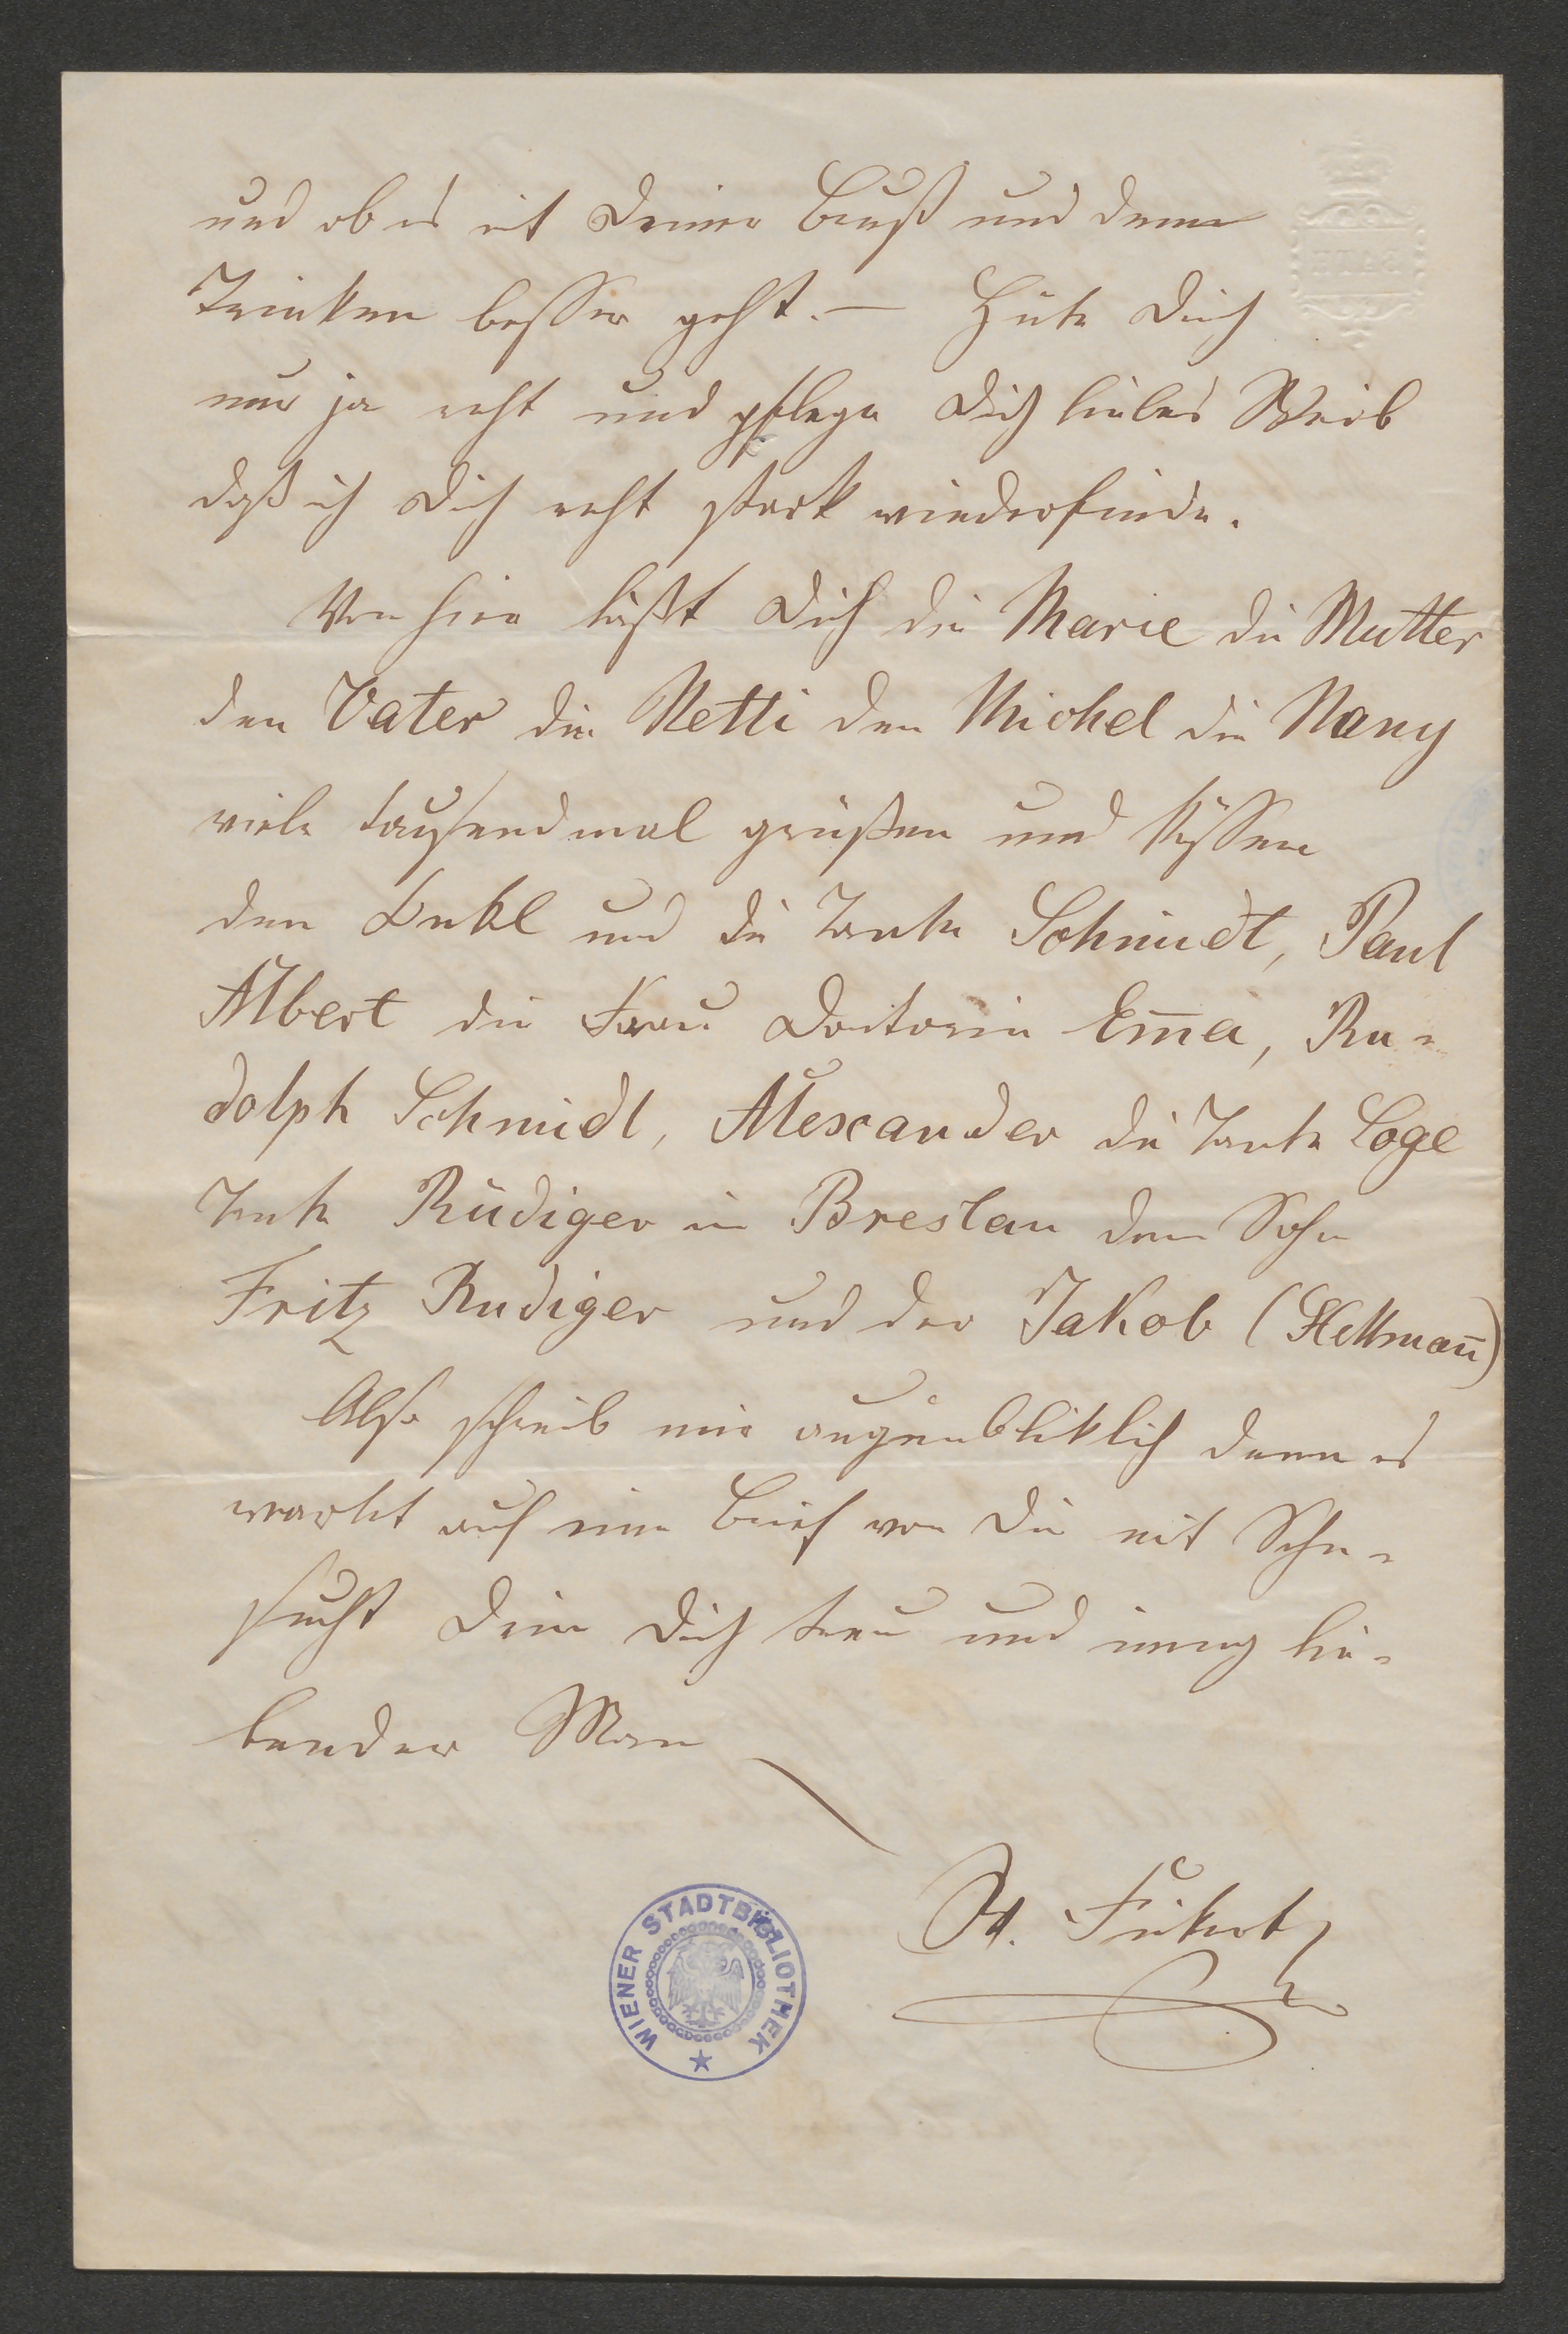 und ob es mit Deiner Brust und dem
Trinken besser geht. — Hüte Dich
nur ja recht und pflege Dich liebes Weib
daß ich Dich recht stark wiederfinde.
Von hier läßt Dich die Marie die Mutter
den Vater die Netti den Michel die Nany
viele tausendmal grüßen und küssen
den Onkl und die Tante Schmidt, Paul
Albert die Frau Doctorin Em̅a, Ru-
dolph Schmidl, Alexander die Tante Loge
Tante Rüdiger in Breslau dem Sohn
Fritz Rudiger und der Jakob (Hellman̅)
Also schreib mir augenbliklich denn es
wartet auf einen Brief von Dir mit Sehn-
sucht Dein Dich treu und innig lie-
bender Man
A. Fükert
WIENER STADTBIBLIOTHEK
BATH